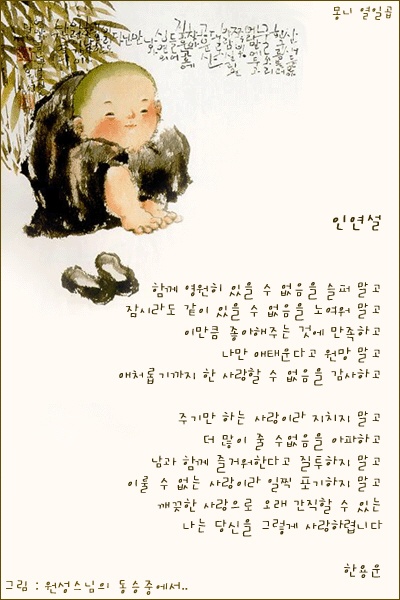 몽니 열일곱
인연설
함께 영원히 있을 수 없음을 슬퍼 말고
잠시라도 같이 있을 수 없음을 노여워 말고
이만큼 좋아해주는 것에 만족하고
나만 애태운다고 원망 말고
애처롭기까지 한 사랑할 수 없음을 감사하고
주기만 하는 사랑이라 지치지 말고
더 많이 줄 수없음을 아파하고
남과 함께 즐거워한다고 질투하지 말고
이룰 수 없는 사랑이라 일찍 포기하지 말고
깨끗한 사랑으로 오래 간직할 수 있는
나는 당신을 그렇게 사랑하렵니다
한용운
그림 : 원성스님의 동승중에서..